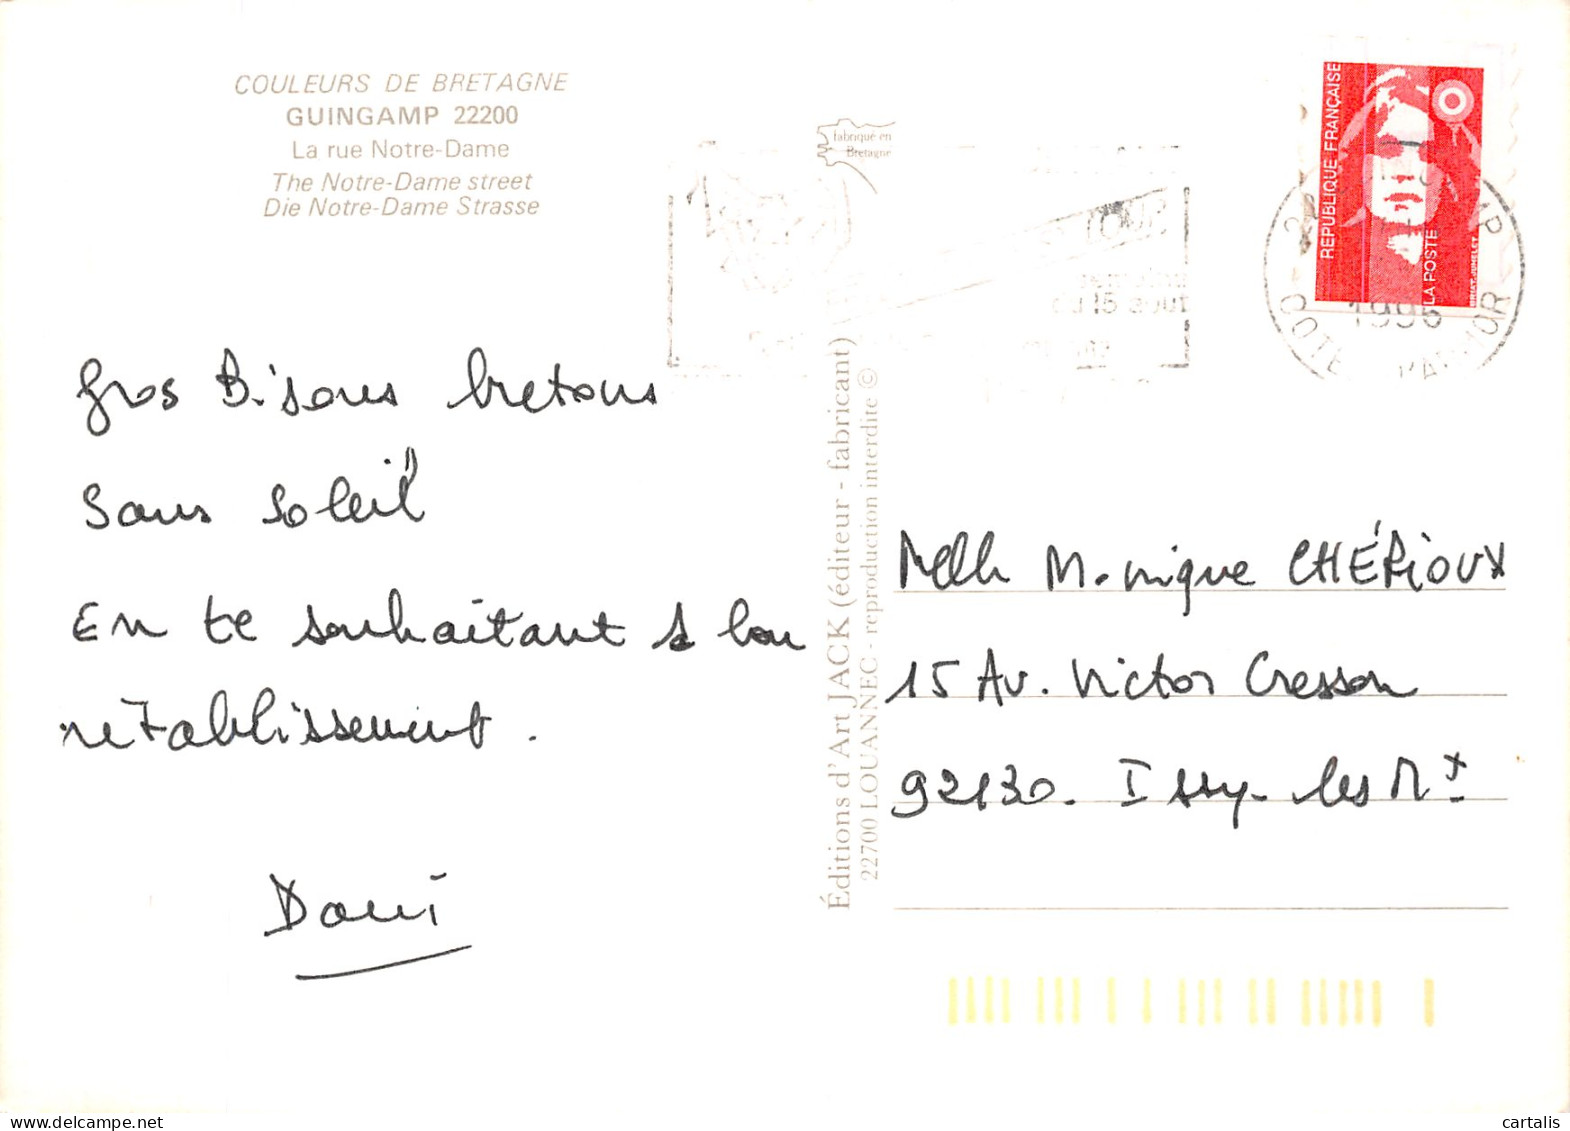 COULEURS DE BRETAGNE
GUINGAMP 22200
La rue Notre-Dame
The Notre-Dame street
Die Notre-Dame Strasse
fabriqué en
Bretagne
RÉPUBLIQUE FRANÇAISE
LA POSTE
1996
gros Bisous bretons
sans soleil
En te souhaitant 1 bon
rétablissement.
Dani
Éditions d'Art JACK (éditeur - fabricant)
22700 LOUANNEC - reproduction interdite ©
Melle Monique CHÉRIOUX
15 Av. Victor Cresson
92130. Issy-les Mx
cartalis